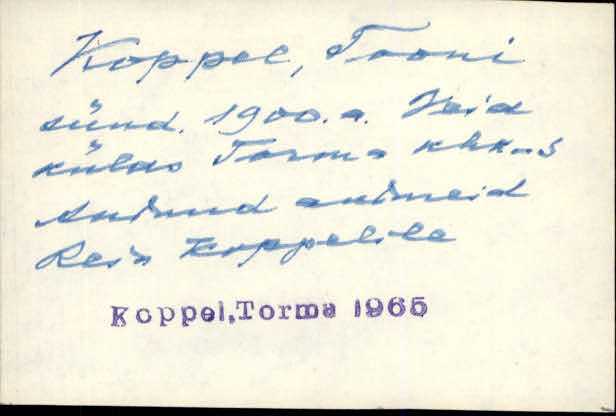 Koppel, Tooni
sünd. 1900. a. Võid
külas Torma khk-s
Andnud andmeid
Rein Koppelile
Koppel, Torma 1965